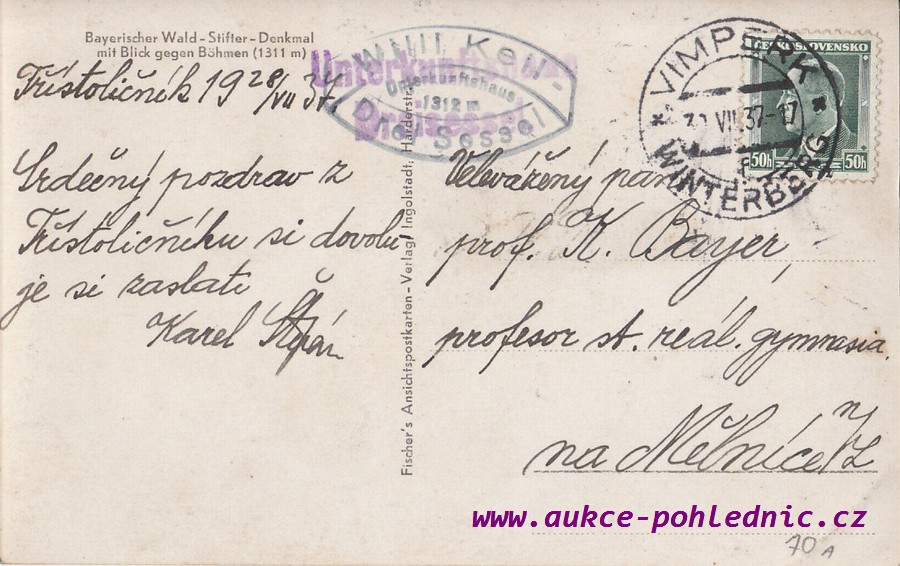 Bayerischer Wald - Stifter - Denkmal
mit Blick gegen Böhmen (1311 m)
Třístoličník 1928/VII 37.
Srdečný pozdrav z
Třístoličníku si dovolu
je si zaslati
Karel Štěpán
Unterkunftshaus
Dreisessel
Willi Kell
Unterkunftshaus
1312 m
Drei Sessel
Fischer's Ansichtspostkarten-Verlag Ingolstadt, Harderstr.
ČESKOSLOVENSKO
50h 50h
VIMPERK
VII.37-17
WINTERBERG
Velevážený pan
prof. K. Bayer,
profesor st. reál. gymnasia
na Mělníce n/L
www.aukce-pohlednic.cz
70 A